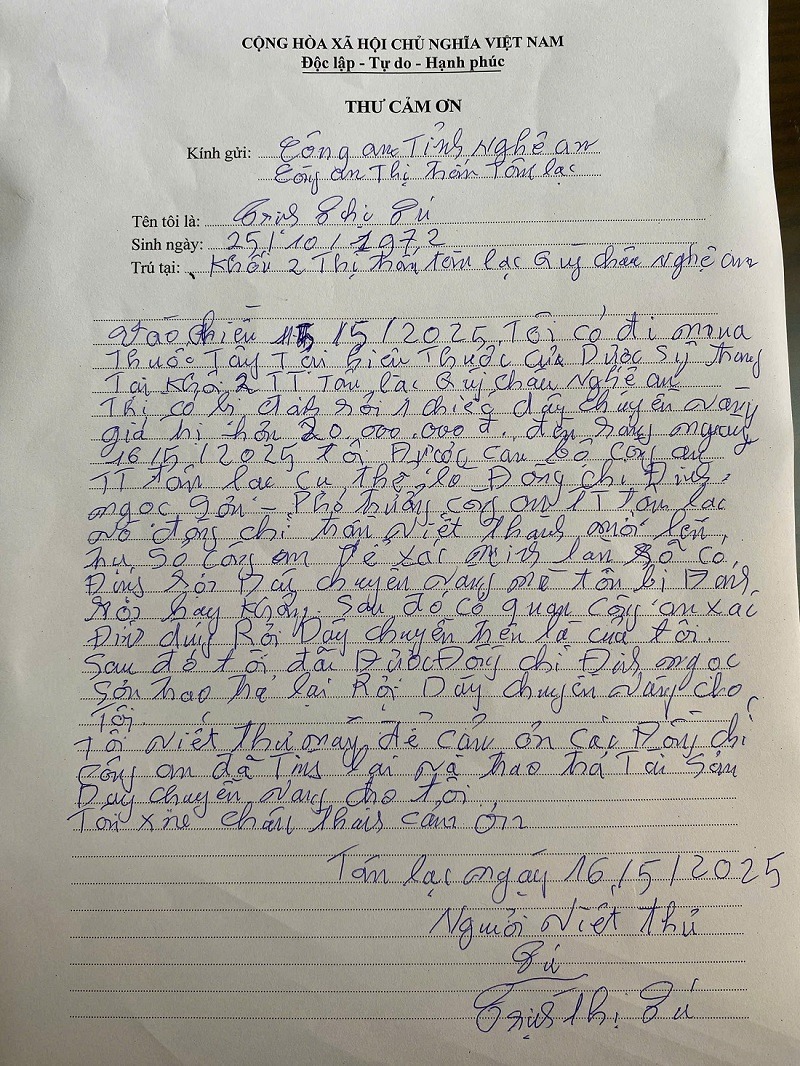 CỘNG HÒA XÃ HỘI CHỦ NGHĨA VIỆT NAM
Độc lập - Tự do - Hạnh phúc
THƯ CẢM ƠN
Kính gửi: Công an Tỉnh Nghê an
Công an Thị trấn Tân lạc
Tên tôi là: Trịnh Thị Tú
Sinh ngày: 25/10/1972
Trú tại: Khối 2 Thị trấn tân lạc Quỳ châu Nghệ an
Vào chiều 15/5/2025 Tôi có đi mua
Thuốc Tây Tại hiệu Thuốc của Dược Sỹ
Tại Khối 2 TT Tân lạc Quỳ châu Nghệ an
Thì có bị đánh rơi 1 chiếc dây chuyền vàng
giá trị hơn 20.000.000đ. đến sáng ngày
16/5/2025 tôi Được cán bộ công an
TT tân lạc cụ thể là Đồng chí Đinh
ngọc Sơn - Phó trưởng công an TT tân lạc
và đồng chí trần viết thanh mời lên
trụ sở công an để xác minh
Đúng sợi Dây chuyền vàng mà tôi bị Đánh
Rơi hay không. Sau đó cơ quan công an xác
Định đúng Rợi Dây chuyền trên là của tôi.
Sau đó tôi đã Được Đồng chí Đinh ngọc
Sơn trao trả lại Rợi Dây chuyền vàng cho
Tôi.
Tôi viết thư này để cảm ơn các Đồng chí
Công an đã Tìm lại và trao trả Tài sản
Dây chuyền vàng cho tôi.
Tôi xin chân thành cảm ơn
Tân lạc ngày 16/5/2025
Người viết thư
Tú
Trịnh Thị Tú